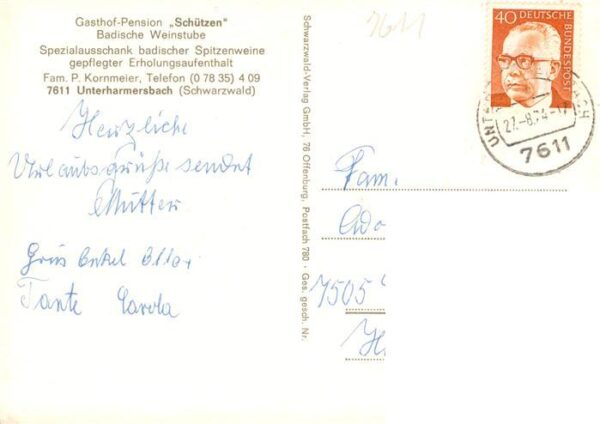 Gasthof-Pension „Schützen"
Badische Weinstube
Spezialausschank badischer Spitzenweine
gepflegter Erholungsaufenthalt
Fam. P. Kornmeier, Telefon (0 78 35) 4 09
7611 Unterharmersbach (Schwarzwald)
Herzliche
Urlaubsgrüße sendet
Mutter
Tante Carola
Schwarzwald-Verlag GmbH, 76 Offenburg, Postfach 780 · Ges. gesch. Nr.
7611
40 DEUTSCHE
BUNDESPOST
7611
Fam.
7505
H.